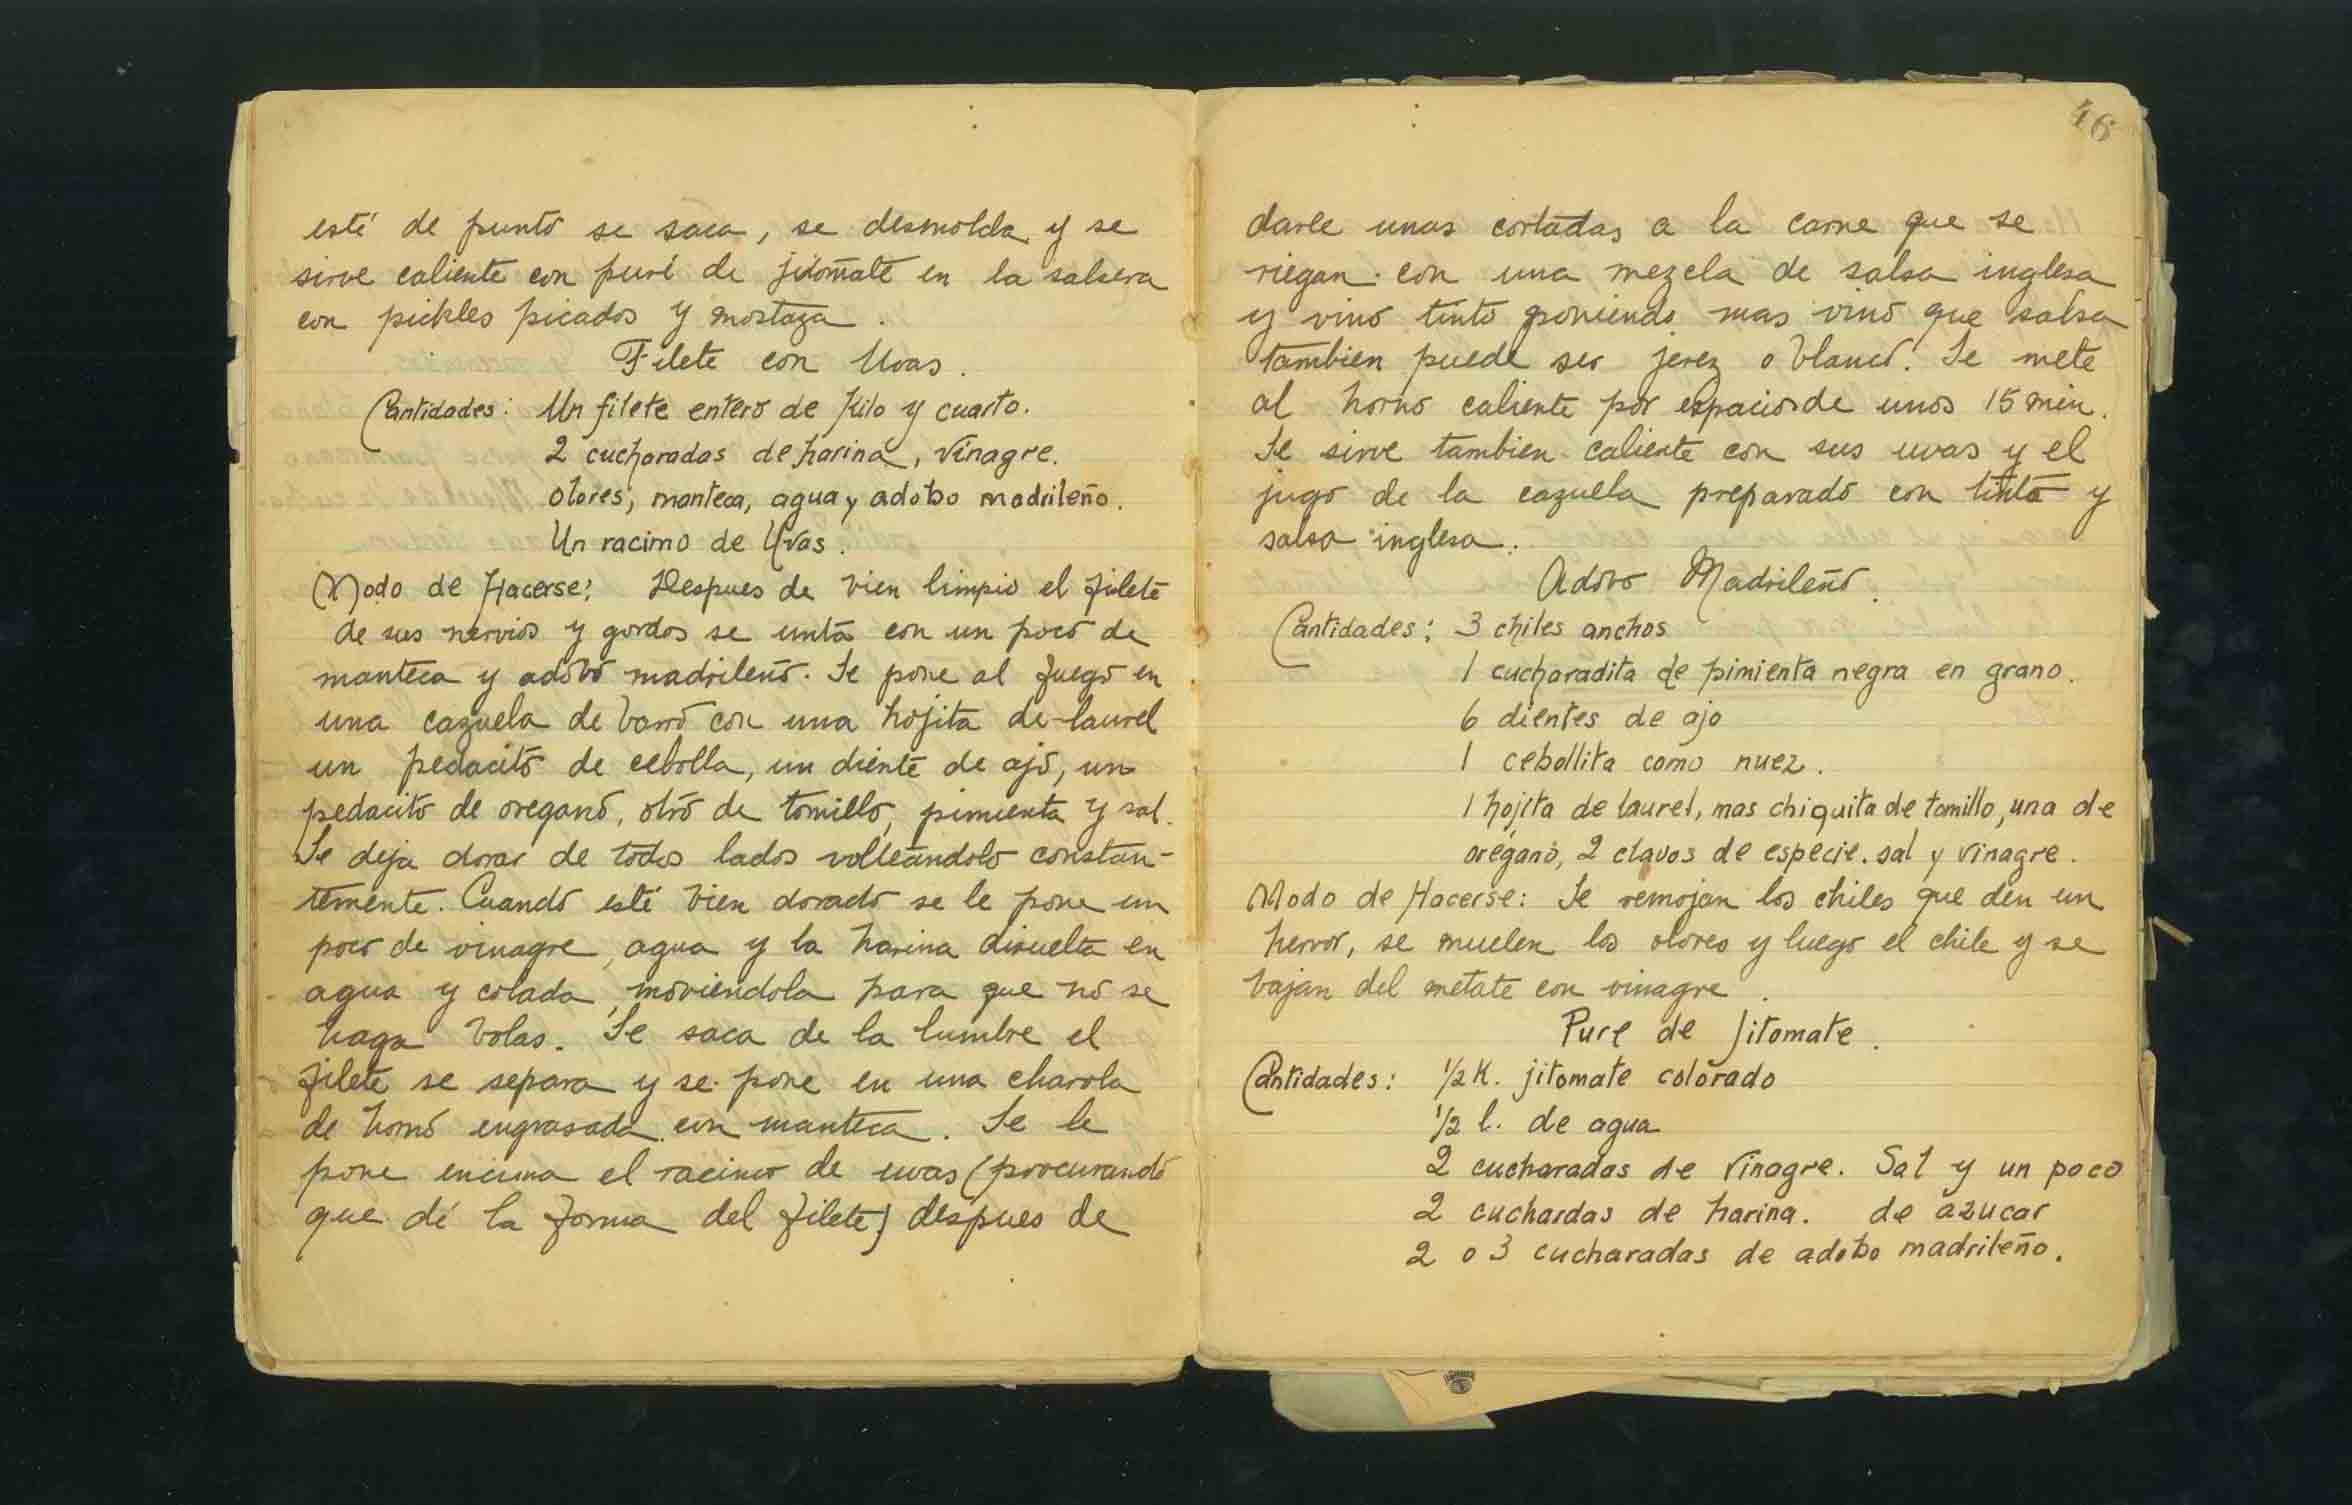 esté de punto se saca, se desmolda y se
sirve caliente con puré de jitomate en la salsera
con pickles picados y mostaza.
Filete con Uvas.
Cantidades: Un filete entero de Kilo y cuarto.
2 cucharadas de harina, vinagre.
olores, manteca, agua y adobo madrileño.
Un racimo de Uvas.
Modo de Hacerse: Despues de bien limpio el filete
de sus nervios y gordos se unta con un poco de
manteca y adobo madrileño. Se pone al fuego en
una cazuela de barro con una hojita de laurel
un pedacito de cebolla, un diente de ajo, un
pedacito de oregano, otro de tomillo, pimienta y sal.
Se deja dorar de todos lados volteandolo constan-
temente. Cuando esté bien dorado se le pone un
poco de vinagre, agua y la harina disuelta en
agua y colada, moviendola para que no se
haga bolas. Se saca de la lumbre el
filete se separa y se pone en una charola
de horno engrasada con manteca. Se le
pone encima el racimo de uvas (procurando
que dé la forma del filete) despues de
46
darle unas cortadas a la carne que se
riegan con una mezcla de salsa inglesa
y vino tinto poniendo mas vino que salsa
tambien puede ser jerez o blanco. Se mete
al horno caliente por espacio de unos 15 min.
Se sirve tambien caliente con sus uvas y el
jugo de la cazuela preparado con tinto y
salsa inglesa.
Adobo Madrileño.
Cantidades: 3 chiles anchos
1 cucharadita de pimienta negra en grano.
6 dientes de ajo
1 cebollita como nuez.
1 hojita de laurel, mas chiquita de tomillo, una de
orégano, 2 clavos de especie. sal y vinagre.
Modo de Hacerse: Se remojan los chiles que den un
hervor, se muelen los olores y luego el chile y se
bajan del metate con vinagre.
Pure de Jitomate.
Cantidades: 1/2 K. jitomate colorado
1/2 l. de agua
2 cucharadas de Vinagre. Sal y un poco
2 cuchardas de harina. de azucar
2 o 3 cucharadas de adobo madrileño.